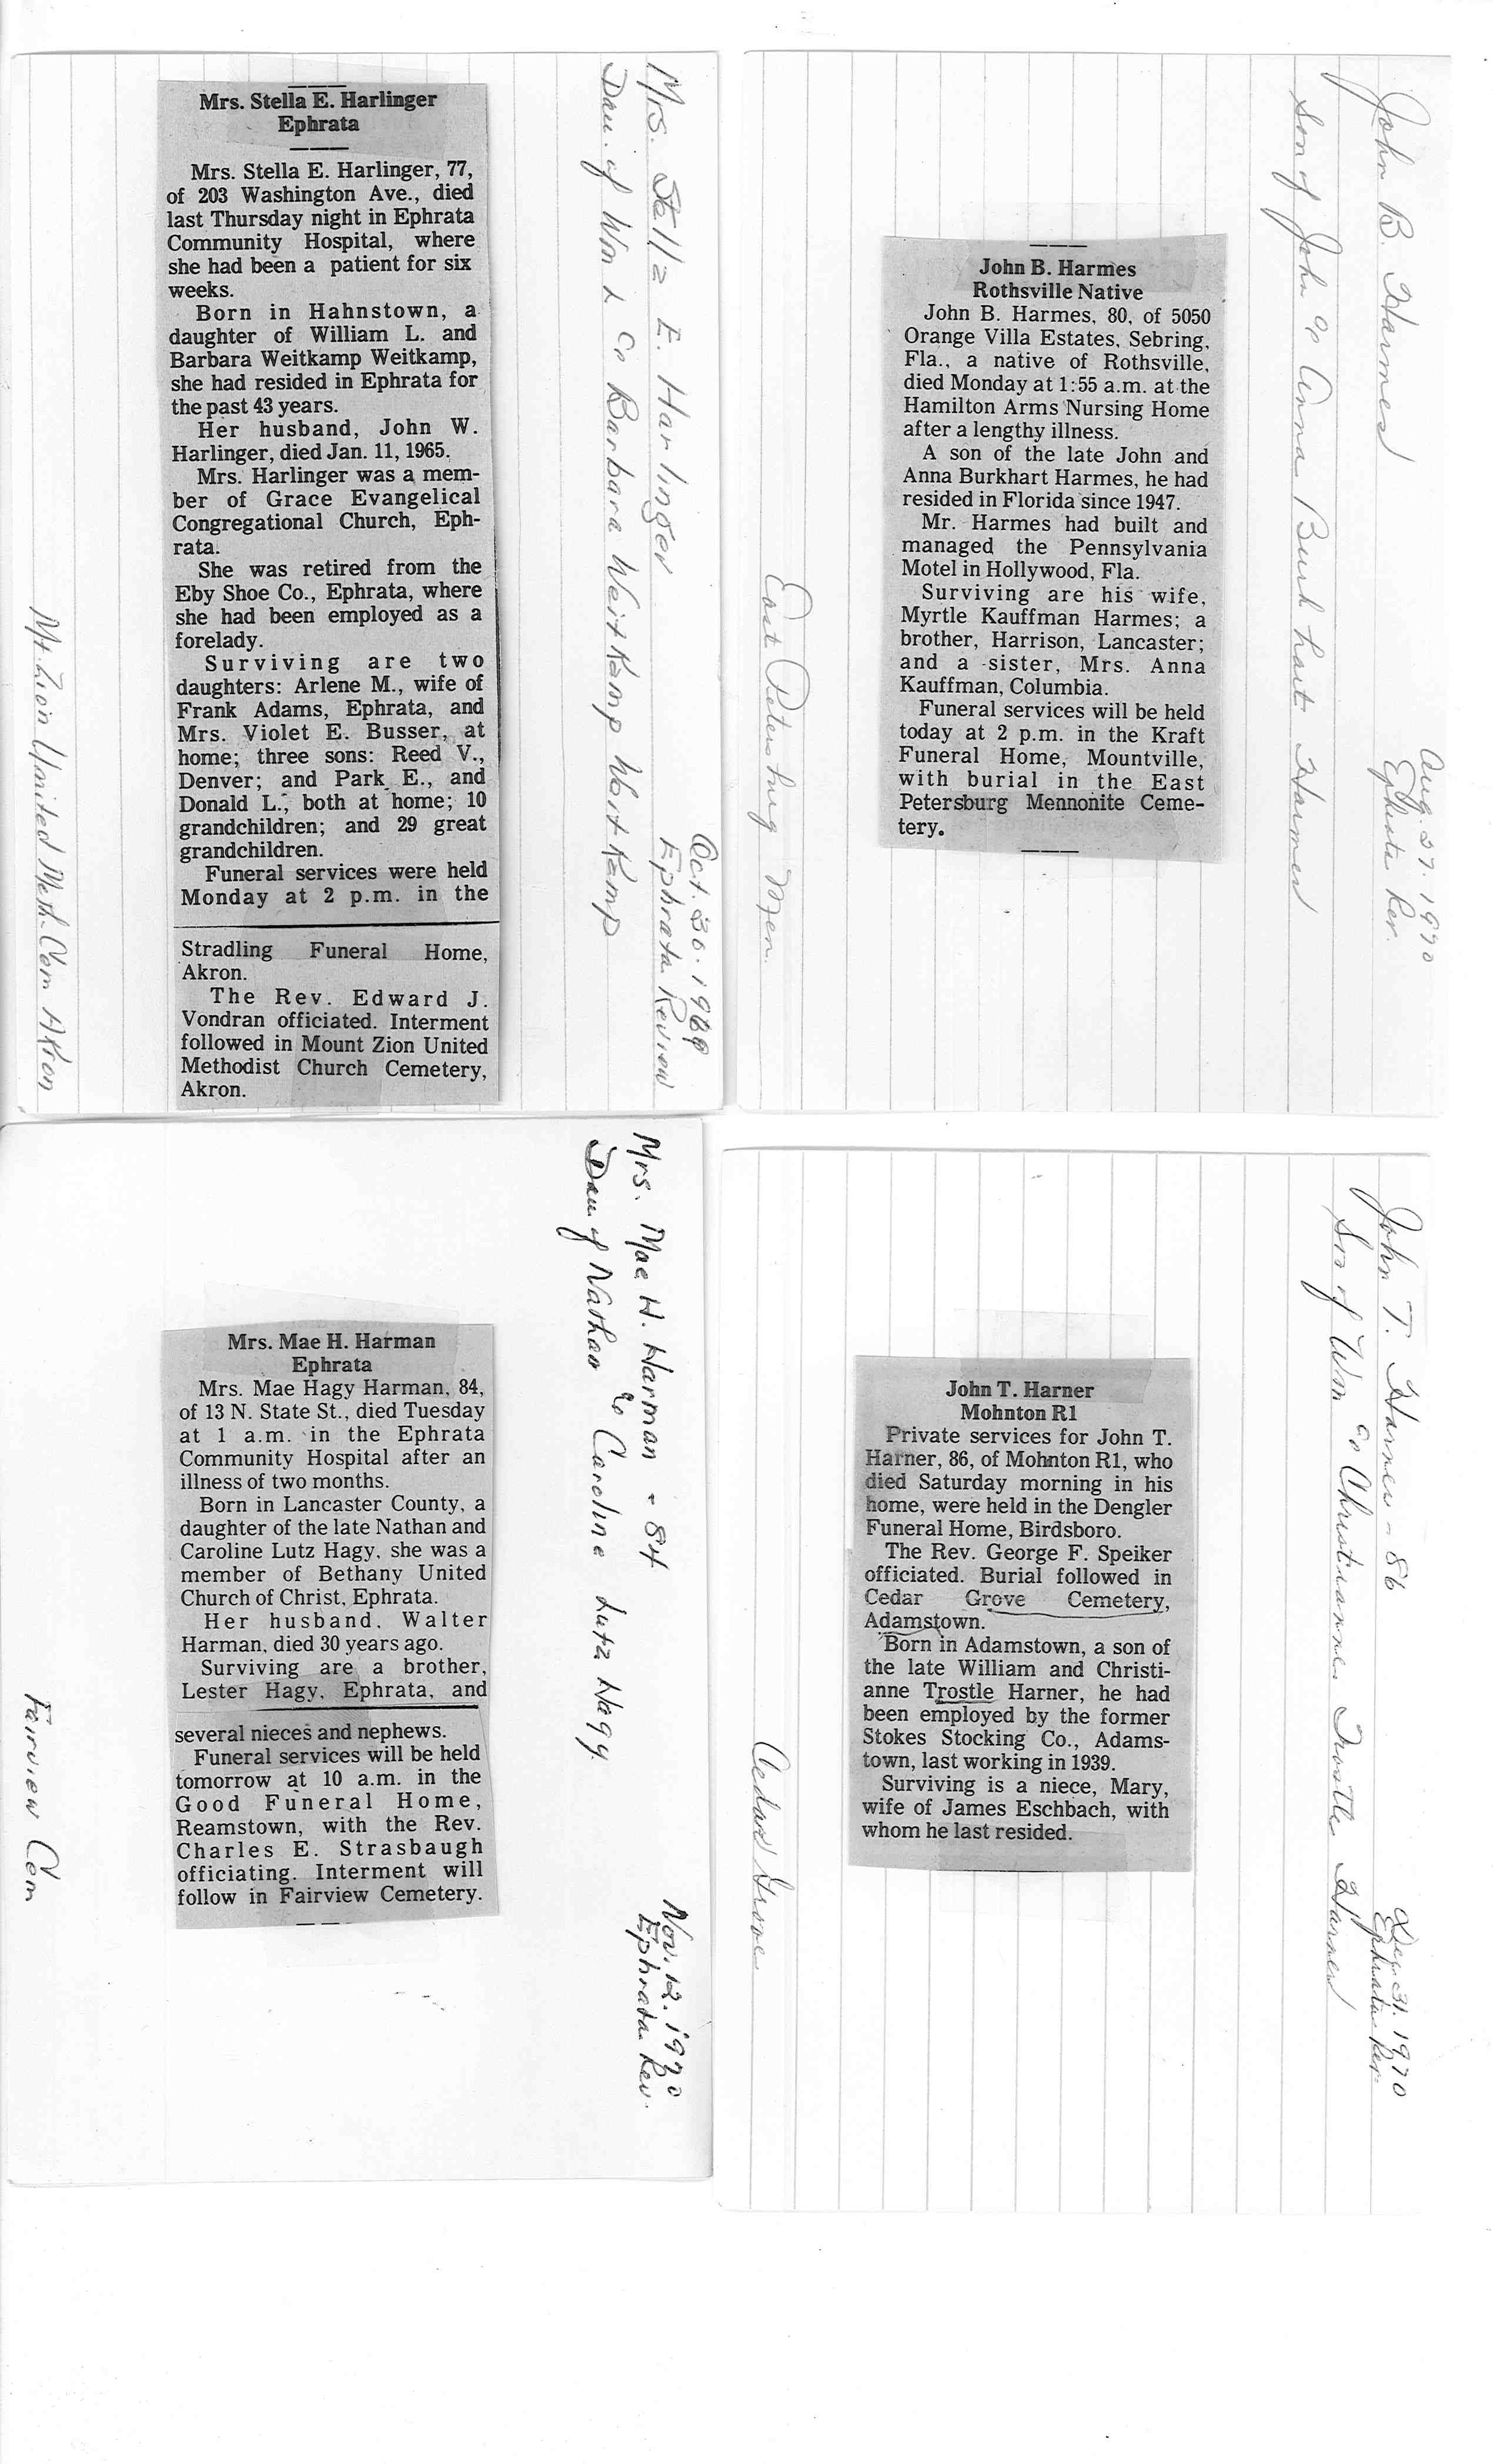 Mrs. Stella E. Harlinger
Dau. of Wm L & Barbara Weitkamp Weitkamp
Oct. 30. 1969
Ephrata Review
Mrs. Stella E. Harlinger
Ephrata
Mrs. Stella E. Harlinger, 77,
of 203 Washington Ave., died
last Thursday night in Ephrata
Community Hospital, where
she had been a patient for six
weeks.
Born in Hahnstown, a
daughter of William L. and
Barbara Weitkamp Weitkamp,
she had resided in Ephrata for
the past 43 years.
Her husband, John W.
Harlinger, died Jan. 11, 1965.
Mrs. Harlinger was a mem-
ber of Grace Evangelical
Congregational Church, Eph-
rata.
She was retired from the
Eby Shoe Co., Ephrata, where
she had been employed as a
forelady.
Surviving are two
daughters: Arlene M., wife of
Frank Adams, Ephrata, and
Mrs. Violet E. Busser, at
home; three sons: Reed V.,
Denver; and Park E., and
Donald L., both at home; 10
grandchildren; and 29 great
grandchildren.
Funeral services were held
Monday at 2 p.m. in the
Stradling Funeral Home,
Akron.
The Rev. Edward J.
Vondran officiated. Interment
followed in Mount Zion United
Methodist Church Cemetery,
Akron.
Mt. Zion United Meth. Cem Akron
John B. Harmes
Son of John & Anna Burkhart Harmes
Aug. 27. 1970
Ephrata Rev.
John B. Harmes
Rothsville Native
John B. Harmes, 80, of 5050
Orange Villa Estates, Sebring,
Fla., a native of Rothsville,
died Monday at 1:55 a.m. at the
Hamilton Arms Nursing Home
after a lengthy illness.
A son of the late John and
Anna Burkhart Harmes, he had
resided in Florida since 1947.
Mr. Harmes had built and
managed the Pennsylvania
Motel in Hollywood, Fla.
Surviving are his wife,
Myrtle Kauffman Harmes; a
brother, Harrison, Lancaster;
and a sister, Mrs. Anna
Kauffman, Columbia.
Funeral services will be held
today at 2 p.m. in the Kraft
Funeral Home, Mountville,
with burial in the East
Petersburg Mennonite Ceme-
tery.
East Petersburg Men.
Mrs. Mae H. Harman - 84
Dau. of Nathan & Caroline Lutz Hagy.
Nov. 12. 1970
Ephrata Rev.
Mrs. Mae H. Harman
Ephrata
Mrs. Mae Hagy Harman, 84,
of 13 N. State St., died Tuesday
at 1 a.m. in the Ephrata
Community Hospital after an
illness of two months.
Born in Lancaster County, a
daughter of the late Nathan and
Caroline Lutz Hagy, she was a
member of Bethany United
Church of Christ, Ephrata.
Her husband, Walter
Harman, died 30 years ago.
Surviving are a brother,
Lester Hagy, Ephrata, and
several nieces and nephews.
Funeral services will be held
tomorrow at 10 a.m. in the
Good Funeral Home,
Reamstown, with the Rev.
Charles E. Strasbaugh
officiating. Interment will
follow in Fairview Cemetery.
Fairview Cem
John T. Harner - 86
Son of Wm & Christianne Trostle Harner
Dec 31. 1970
Ephrata Rev.
John T. Harner
Mohnton R1
Private services for John T.
Harner, 86, of Mohnton R1, who
died Saturday morning in his
home, were held in the Dengler
Funeral Home, Birdsboro.
The Rev. George F. Speiker
officiated. Burial followed in
Cedar Grove Cemetery,
Adamstown.
Born in Adamstown, a son of
the late William and Christi-
anne Trostle Harner, he had
been employed by the former
Stokes Stocking Co., Adams-
town, last working in 1939.
Surviving is a niece, Mary,
wife of James Eschbach, with
whom he last resided.
Cedar Grove